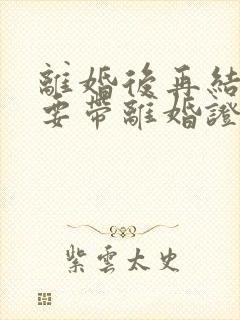 離婚後再結
要帶離婚證
紫雲太史